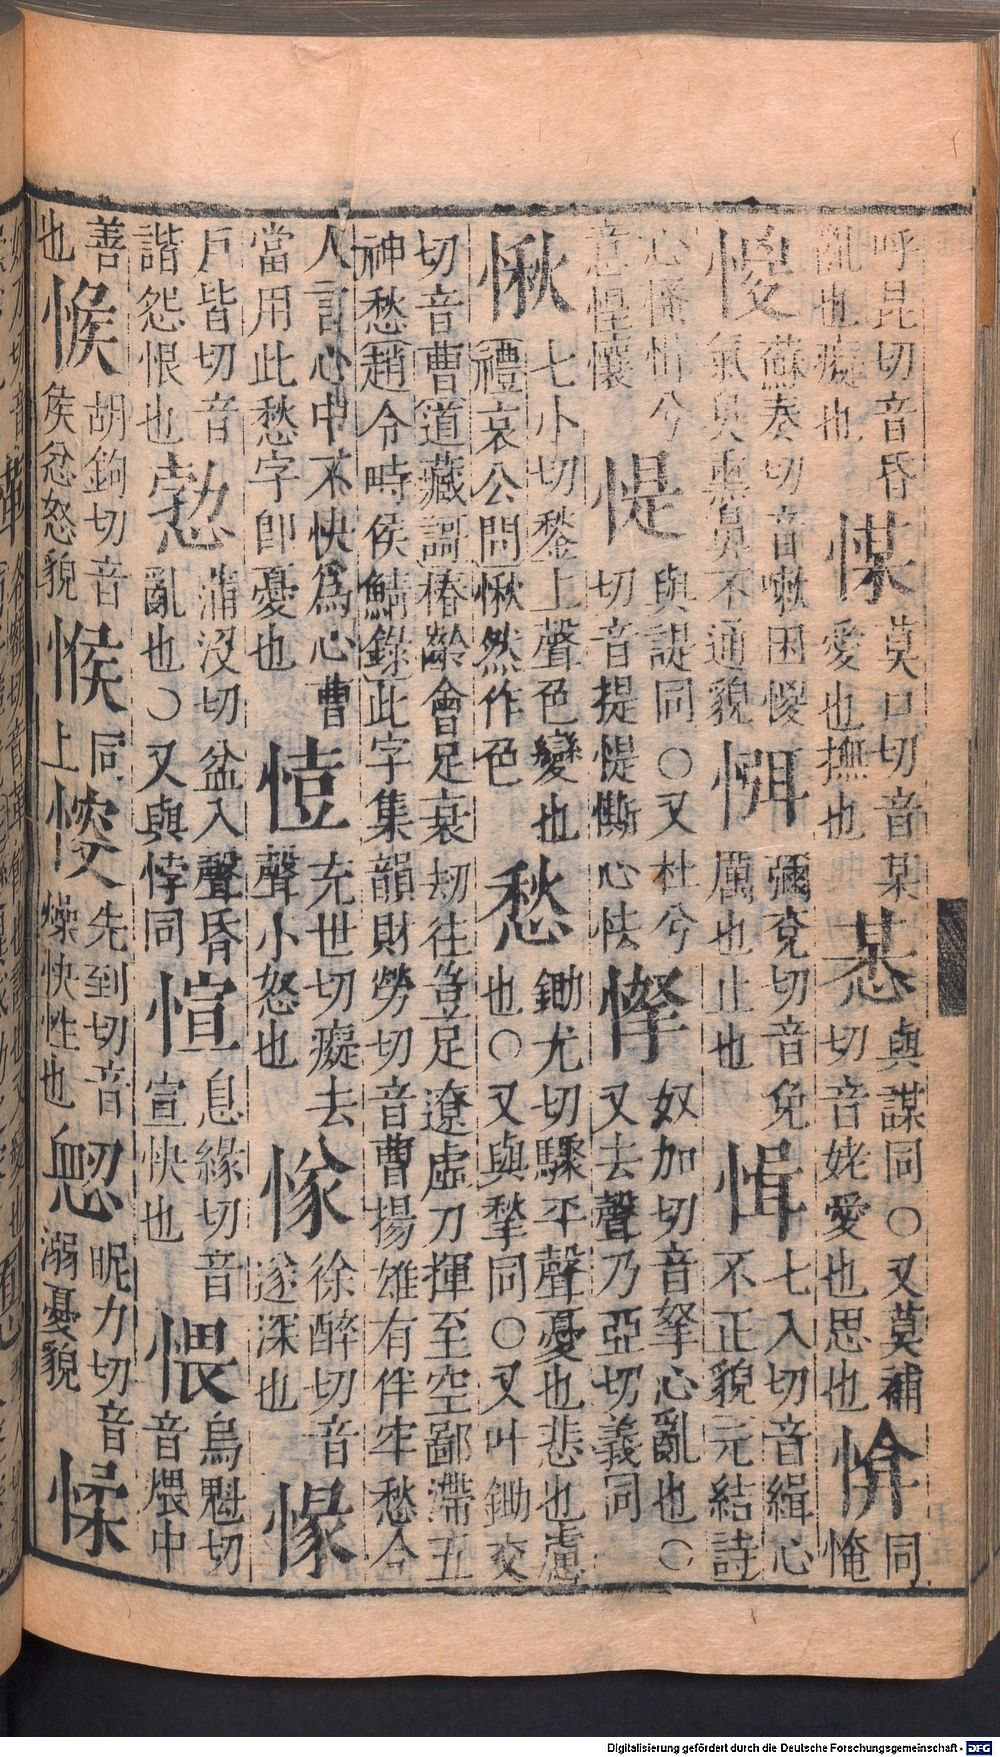 呼昆切音昏
亂也癡也
㦊
莫口切音某
愛也撫也
惎
與謀同○又莫補
切音姥愛也思也
㤿
同
俺
㥰
蘇奏切音嗽困㥰
氣臭熏鼻不通貌
㥝
彌兖切音免
厲也止也
㥍
七入切音緝心
不正貌元結詩
心㦊㤿兮
意惶懷
惿
與諟同○又杜兮
切音提惿㒋心怯
㐐
奴加切音拏心亂也○
又去聲乃亞切義同
愀
七小切鍫上聲色變也
禮哀公問愀然作色
愁
鋤尤切驟平聲憂也悲也慮
也○又與揫同○又叶鋤交
切音曹道藏謌椿齡會足衰劫往豈足遼虛刀揮至空鄙滯五
神愁趙令時侯鯖錄此字集韻財勞切音曹揚雄有伴牢愁今
人言心中不快爲心曹
當用此愁字卽憂也
㥀
充世切癡去
聲小怒也
㥞
徐醉切音
遂深也
㥟
戶皆切音
諧怨恨也
愂
蒲沒切盆入聲昏
亂也○又與悖同
愃
息緣切音
宣快也
愄
烏魁切
音煨中
善
也
㤧
胡鉤切音
矦忿怒貌
㤧
同
上
㥬
先到切音
燥快性也
㥾
昵力切音
溺憂貌
惵
Digitalisierung gefördert durch die Deutsche Forschungsgemeinschaft - DFG